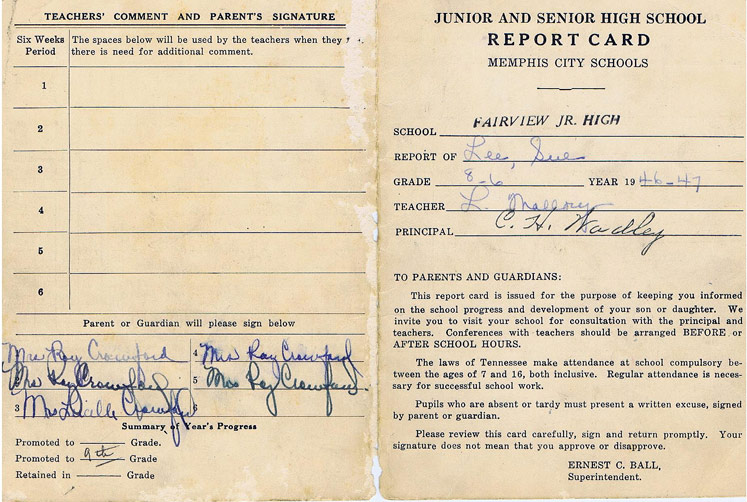 TEACHERS' COMMENT AND PARENT'S SIGNATURE
Six Weeks Period
The spaces below will be used by the teachers when they
there is need for additional comment.
1
2
3
4
5
6
Parent or Guardian will please sign below
Mrs Ray Crawford
4 Mrs Ray Crawford
Mrs Ray Crawford
5 Mrs Ray Crawford
3 Mrs Lucille Crawford
6
Summary of Year's Progress
Promoted to Grade.
Promoted to 9th Grade
Retained in Grade
JUNIOR AND SENIOR HIGH SCHOOL
REPORT CARD
MEMPHIS CITY SCHOOLS
SCHOOL FAIRVIEW JR. HIGH
REPORT OF Lee, Sue
GRADE 8-6 YEAR 1946-47
TEACHER L. Mallory
PRINCIPAL C. H. Wadley
TO PARENTS AND GUARDIANS:
This report card is issued for the purpose of keeping you informed
on the school progress and development of your son or daughter. We
invite you to visit your school for consultation with the principal and
teachers. Conferences with teachers should be arranged BEFORE or
AFTER SCHOOL HOURS.
The laws of Tennessee make attendance at school compulsory be-
tween the ages of 7 and 16, both inclusive. Regular attendance is neces-
sary for successful school work.
Pupils who are absent or tardy must present a written excuse, signed
by parent or guardian.
Please review this card carefully, sign and return promptly. Your
signature does not mean that you approve or disapprove.
ERNEST C. BALL,
Superintendent.